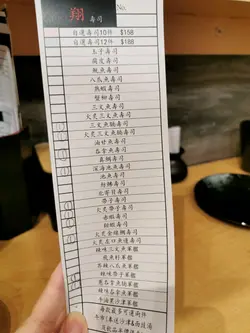 翔 壽司
No.
自選壽司10件 $158
自選壽司12件 $188
玉子壽司
八爪魚壽司
熱蝦壽司
蟹柳壽司
三文魚壽司
火炙三文魚壽司
三文魚腩壽司
火炙三文魚腩壽司
油甘魚壽司
吞拿魚壽司
真鯛壽司
深海池魚壽司
池魚壽司
劍魚壽司
北寄貝壽司
帶子壽司
火炙帶子壽司
赤蝦壽司
甜蝦壽司
火炙金線鯛壽司
火炙左口魚邊壽司
辣味三文魚軍艦
飛魚籽軍艦
吞拿魚軍艦
辣味帶子軍艦
蔥吞拿魚軍艦
辣味吞拿魚軍艦
牛油果沙律軍艦
每款最多可選兩件